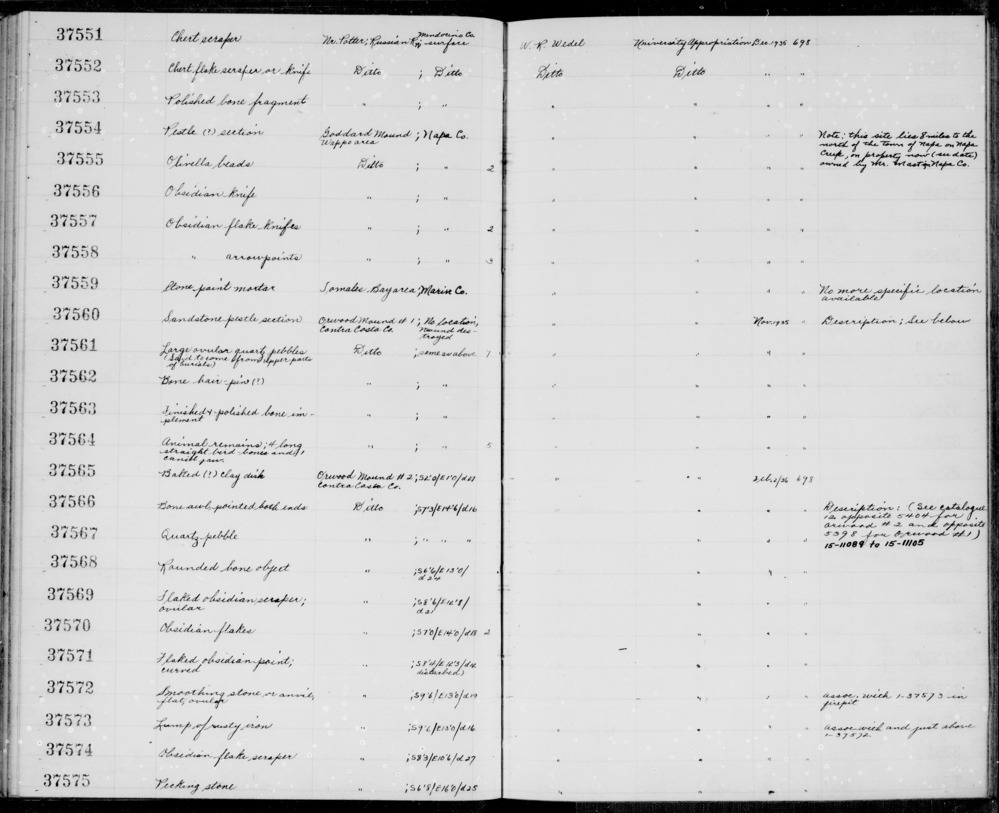 37551 Chert scraper Nr. Potter; Russian R; Mendocino Co. surface W. R. Wedel University Appropriation Dec. 1935 698
37552 Chert flake scraper or knife Ditto ; Ditto Ditto Ditto " "
37553 Polished bone fragment " ; " " " " "
37554 Pestle (?) section Goddard Mound ; Napa Co. " " " " Note; this site lies 8 miles to the
Wappo area north of the town of Napa on Napa
Creek, on property now (see date)
owned by Mr. Mast, Napa Co.
37555 Olivella beads Ditto ; " 2 " " " "
37556 Obsidian knife " ; " " " " "
37557 Obsidian flake knifes " ; " 2 " " " "
37558 " arrowpoints " ; " 3 " " " "
37559 Stone paint mortar Tomales Bay area; Marin Co. " " " " No more specific location
available
37560 Sandstone pestle section Orwood Mound #1 ; No location, " " Nov. 1935 " Description; See below
Contra Costa Co. mound des-
troyed
37561 Large ovular quartz pebbles Ditto ; same as above 7 " " " "
(Said to come from upper parts
of burials)
37562 Bone hair-pin (?) " ; " " " " "
37563 Finished & polished bone im- " ; " " " " "
plement
37564 Animal remains; 4 long " ; " 5 " " " "
straight bird bones and 1
canid jaw.
37565 Baked (?) clay disk Orwood Mound #2; " " Feb. 2/36 698
Contra Costa Co.
37566 Bone awl pointed both ends Ditto ; S7'3/E14'6/d16 " " " " Description: (See catalogue
12 opposite 5404 for
Orwood #2 and opposite
5398 for Orwood #1)
15-11089 to 15-11105
37567 Quartz pebble " ; " " " " " " "
37568 Rounded bone object " ; S6'6/E13'0/ " " " "
d24
37569 Flaked obsidian scraper; " ; S8'6/E16'8/ " " " "
ovular
37570 Obsidian flakes " ; S7'0/E14'0/d18 2 " " " "
37571 Flaked obsidian point; " ; " " " "
curved disturbed)
37572 Smoothing stone or anvil, " ; S9'6/E13'0/d19 " " " " assoc. with 1-37573 in
flat, ovular firepit
37573 Lump of rusty iron " ; S9'6/E13'0/d16 " " " " assoc with and just above
1-37572
37574 Obsidian flake scraper " ; S8'3/E10'6/d27 " " " "
37575 Pecking stone " ; S6'8/E16'0/d25 " " " "